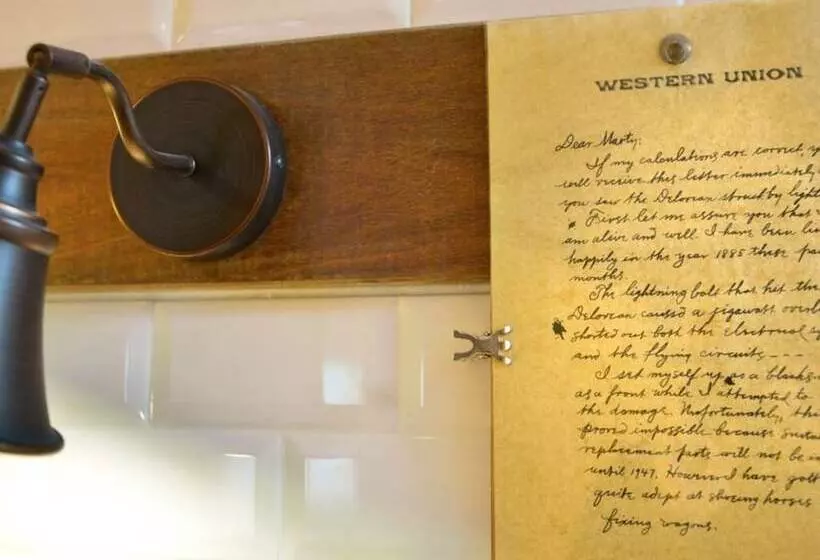 WESTERN UNION
Dear Marty:
If my calculations are correct, y
will receive this letter immediately
you saw the Delorean struck by light
First let me assure you that
am alive and well. I have been liv
happily in the year 1885 these pa
months.
The lightning bolt that hit the
Delorean caused a jigawatt overl
shorted out both the electrical sy
and the flying circuits ---
I set myself up as a blacks
as a front while I attempted to
the damage. Unfortunately, this
proved impossible because suita
replacement parts will not be in
until 1947. However I have gott
quite adept at shoeing horses
fixing wagons.